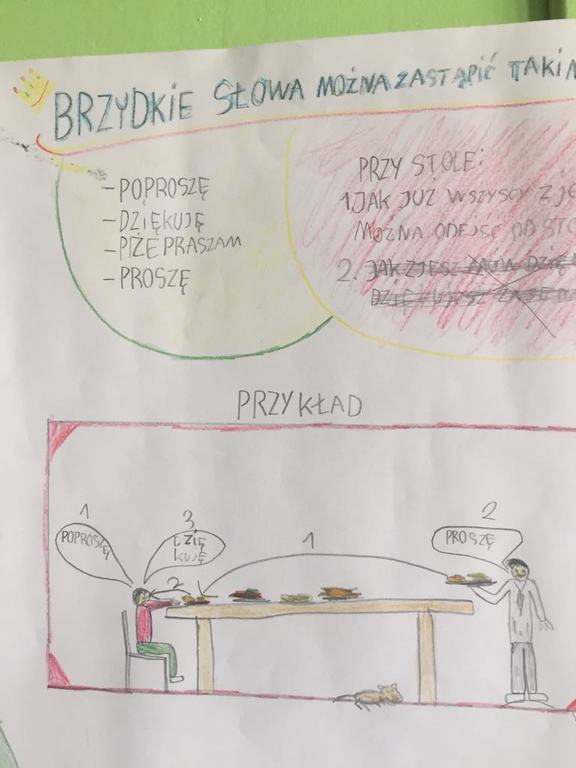 BRZYDKIE SŁOWA MOŻNA ZASTĄPIĆ TAKIM
- POPROSZĘ
- DZIĘKUJĘ
- PRZEPRASZAM
- PROSZĘ
PRZY STOLE:
1. JAK JUŻ WSZYSCY ZJE
MOŻNA ODEJŚĆ OD STO
2. JAK ZJESZ DZIĘ
DZIĘKUJESZ ZA JEDZ
PRZYKŁAD
1
POPROSZĘ
3
DZIĘ
KUJĘ
2
1
2
PROSZĘ